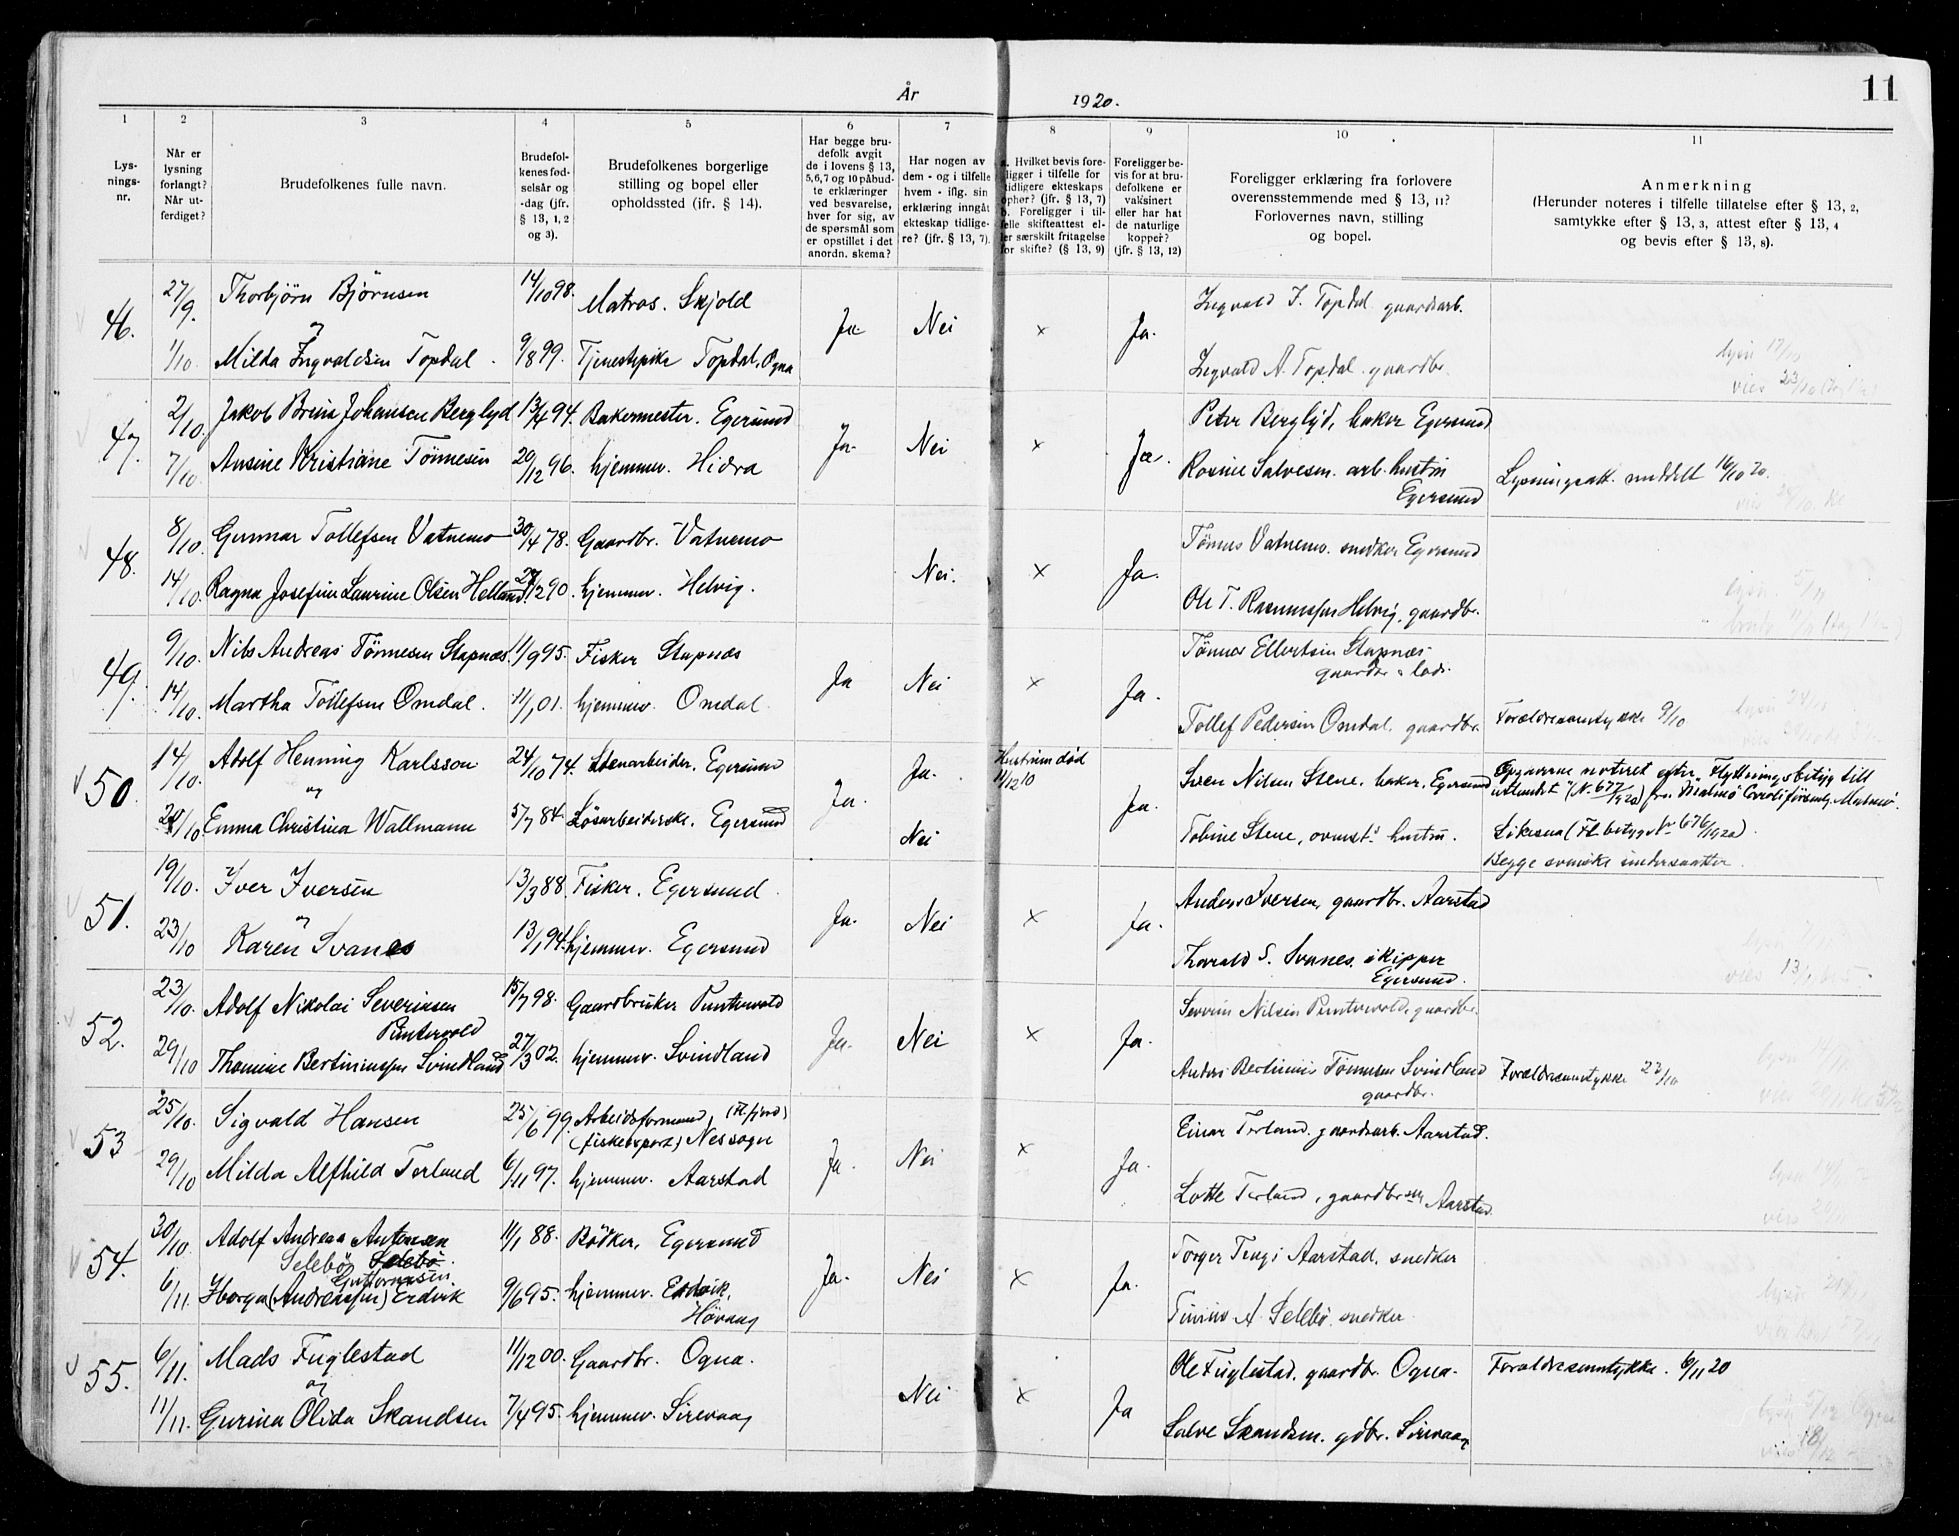 11
År 1920.
1 2 3 4 5 6 7 8 9 10 11
Lys-
nings-
nr.
Når er
lysning
forlangt?
Når ut-
ferdiget?
Brudefolkenes fulle navn.
Brudefol-
kenes fød-
selsår og
-dag (jfr.
§ 13, 1, 2
og 3).
Brudefolkenes borgerlige
stilling og bopel eller
opholdssted (jfr. § 14).
Har begge bru-
defolk avgit
de i lovens § 13,
5,6,7 og 10 påbud-
te erklæringer
ved besvarelse,
hver for sig, av
de spørsmål som
er opstillet i det
anordn. skema?
Har nogen av
dem - og i tilfelle
hvem - iflg. sin
erklæring inngåt
ekteskap tidlige-
re? (jfr. § 13, 7).
a. Hvilket bevis fore-
ligger i tilfelle for
tidligere ekteskaps
ophør? (jfr. § 13, 7)
b. Foreligger i til-
felle skifteattest el-
ler særskilt fritagelse
for skifte? (§ 13, 9)
Foreligger be-
vis for at bru-
defolkene er
vaksinert
eller har hat
de naturlige
kopper?
(jfr. § 13, 12)
Foreligger erklæring fra forlovere
overensstemmende med § 13, 11?
Forlovernes navn, stilling
og bopel.
Anmerkning
(Herunder noteres i tilfelle tillatelse efter § 13, 2,
samtykke efter § 13, 3, attest efter § 13, 4
og bevis efter § 13, 8).
46. 27/9. Thorbjörn Björnsen 14/10 98. Matros. Skjold Ja Nei × Ja. Ingvald I. Topdal gaardarb.
og
1/10. Milda Ingvaldsen Topdal. 9/8 99. Tjenestepike Topdal, Ogna Ingvald A. Topdal gaardbr.
lysn 17/10
vies 23/10
47. 2/10. Jakob Breiu Johansen Berglyd 13/4 94. Bakermester. Egersund Ja Nei × Ja. Peter Berglyd, baker Egersund
7/10 Ansine Kristiane Tönnesen 20/12 96. hjemmev. Hidra Rosine Salvesen. arb. hustru
Egersund
Lysningsatt. meddelt 16/10 20.
48. 8/10. Gunnar Tollefsen Vatnemo 30/4 78. Gaardbr. Vatnemo Nei. × Ja. Tönnes Vatnemo. snedker Egersund
14/10. Ragna Josefine Laurine Olsen Helland 2 90. hjemmev. Helvig. Ole T. Rasmussen Helvig, gaardbr.
49. 9/10. Nils Andreas Tönnesen Stapnæs. 11/9 95. Fisker Stapnæs Ja Nei × Ja. Tönnes Ellertsen Stapnæs
gaardbr & lods.
14/10. Martha Tollefsen Omdal. 11/1 01. hjemmev. Omdal. Tollef Pedersen Omdal, gaardbr. Forældresamtykke 9/10
50. 14/10. Adolf Henning Karlsson 24/10 74. Stenarbeider. Egersund Ja. Ja. Hustruen död
11/12 10 Ja. Sven Nilsen Stene, baker, Egersund
og
/10 Emma Christina Wallmann 5/7 84. Lösarbeiderske. Egersund Nei Tobine Stene, ovenst.s hustru.
Opgaverne noteret efter „Flyttningsbetyg till
utlandet" (N. 677/1920) fra Malmö Caroli försmlg, Malmö.
Likesaa (Fl. betyg Nr 676/1920).
Begge svenske undersaatter.
51. 19/10. Iver Iversen 13/3 88. Fisker. Egersund. Ja. Nei × Ja. Anders Iversen, gaardbr. Aarstad
og
23/10 Karen Svanes 13/1 94. hjemmev. Egersund Thorvald S. Svanes. skipper
Egersund.
vies 13/
52. 23/10. Adolf Nikolai Severinsen
Puntervold 15/7 98. Gaardbruker Puntervold Ja. Nei × Ja. Severin Nilsen Puntervold, gaardbr.
29/10 Thomine Bertiniussen Svindland 27/3 02. hjemmev. Svindland Anders Bertinius Tönnesen Svindland
gaardbr. Forældresamtykke 23/10
53 25/10. Sigvald Hansen 25/6 99. Arbeidsformand, (Fl.fjord)
(fiskeexport) Nessogn Ja. Nei × Ja. Einar Terland. gaardarb. Aarstad.
29/10 Milda Alfhild Terland 6/11 97. hjemmev. Aarstad Lotte Terland, gaardbr.ske Aarstad.
54. 30/10. Adolf Andreas Antonsen
Selebö Selebö. 11/1 88. Bödker, Egersund Ja. Nei × Ja. Torger Tengs Aarstad, snedker
Guttormsen
6/11. Borga (Andreassen) Erdvik 9/6 95. hjemmev. Erdvik,
Hövaag A. Selebö, snedker.
55. 6/11. Mads Fuglestad 11/12 00. Gaardbr. Ogna. Nei × Ja Ole Fuglestad, gaardbr. Ogna. Forældresamtykke. 6/11 20
og
11/11. Gurina Olida Skandsen 7/4 95. hjemmev. Sirevaag Salve Skandsen. gdbr. Sirevaag
lysn 5/12 Ogna
vies 18/12